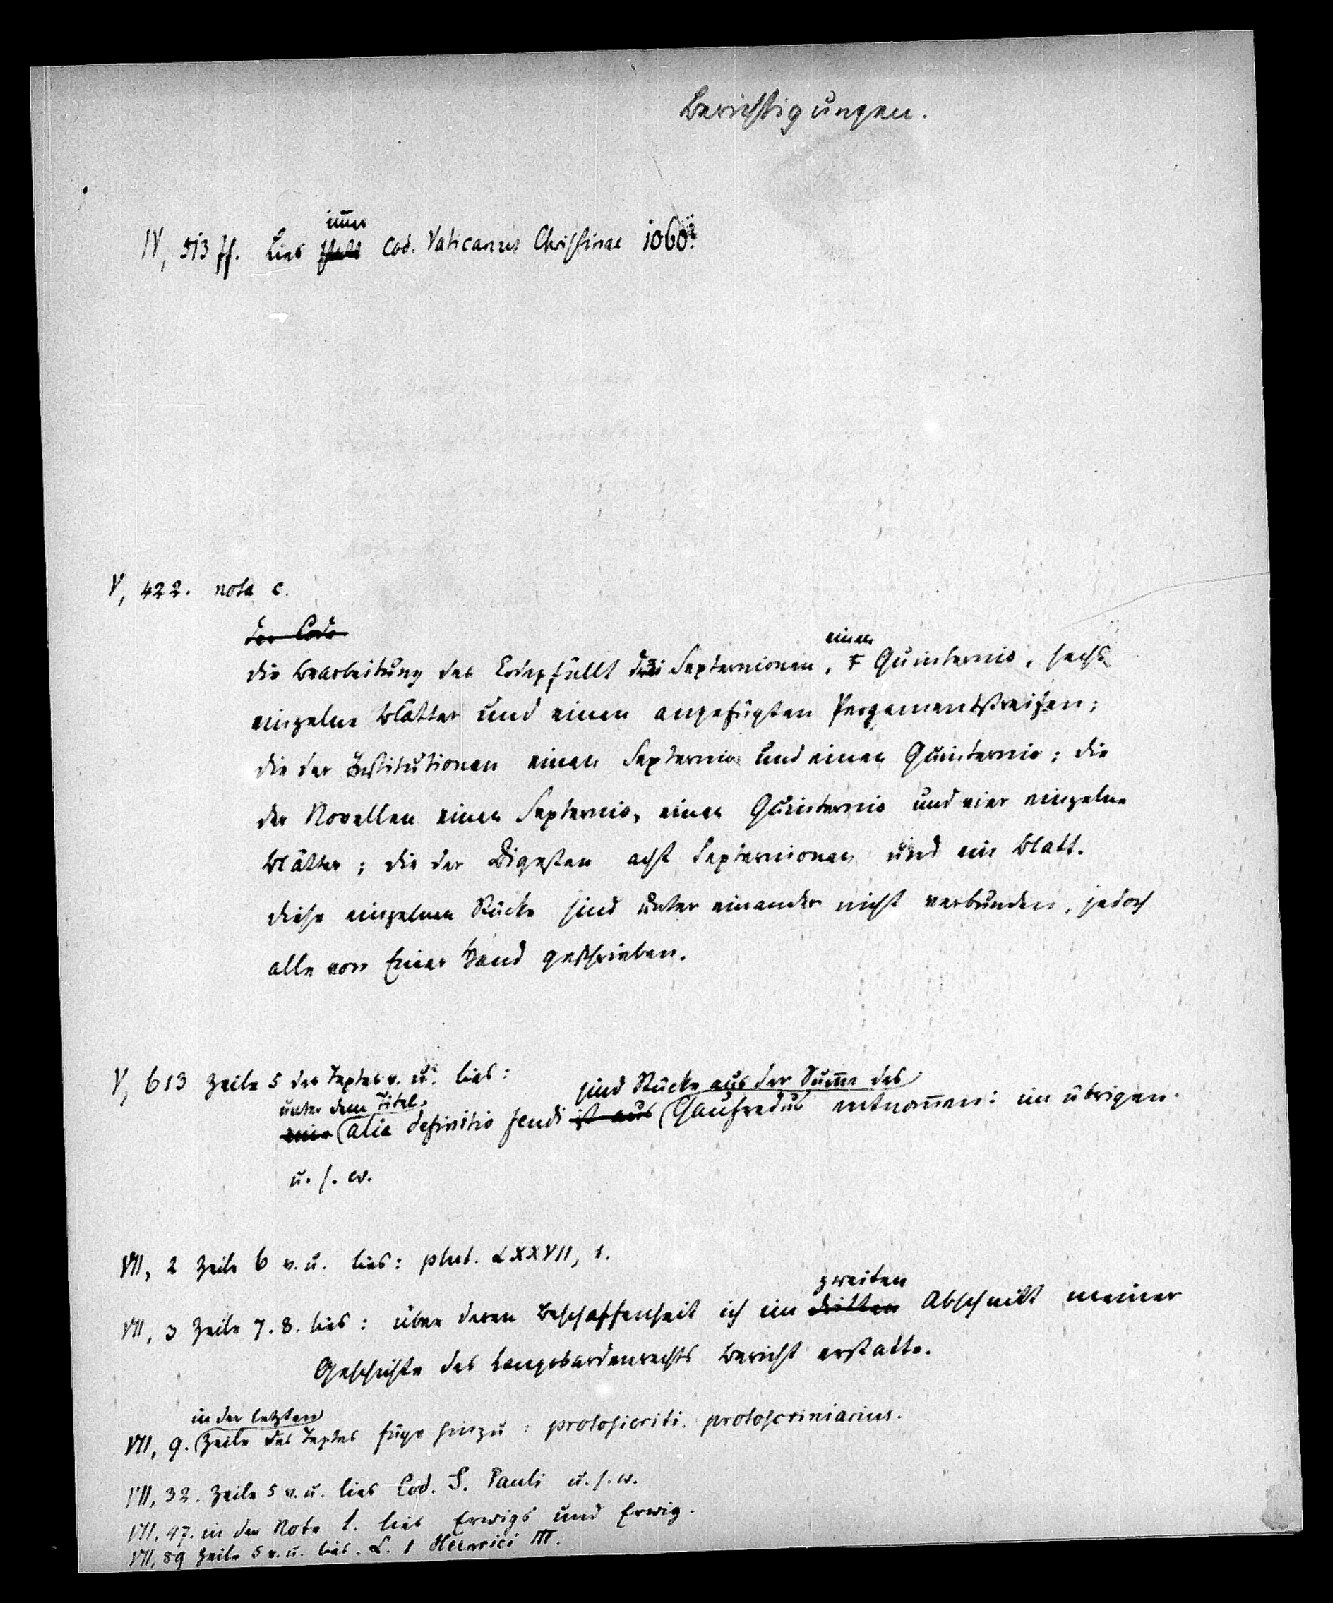 Berichtigungen.
immer
IV, 513 ff. Lies statt Cod. Vaticanus Christinae 1060.
V, 422. nota c.
der Code
einen
die Bearbeitung des Codex füllt drei Septernionen, Quinternio, sechs
einzelne Blätter und einen angefügten Pergamentstreifen;
die der Institutionen einen Septernio und einen Quinternio; die
der Novellen einen Septernio, einen Quinternio und vier einzelne
Blätter; die der Digesten acht Septernionen und ein Blatt.
diese einzelnen Stücke sind unter einander nicht verbunden, jedoch
alle von Einer Hand geschrieben.
V, 613 Zeile 5 des Textes v. u. lies:
unter dem Titel sind Stücke aus der Sum̅a des
alia definitio feudi ist aus Gaufredus entnom̅en: im übrigen.
u. s. w.
VII, 2 Zeile 6 v. u. lies: plut. LXXVII, 1.
zweiten
VII, 3 Zeile 7. 8. lies: über deren Beschaffenheit ich im dritten Abschnitt meiner
Geschichte des Langobardenrechts Bericht erstatte.
in der letzten
VII, 9. Zeile des Textes füge hinzu: protoscriniarius.
VII, 32. Zeile 5 v. u. lies Cod. S. Pauli u. s. w.
VII, 47. in der Note 1. lies Erwigs und Erwig.
VII, 89 Zeile 5 v. u. lies. L. 1 Heinrici III.